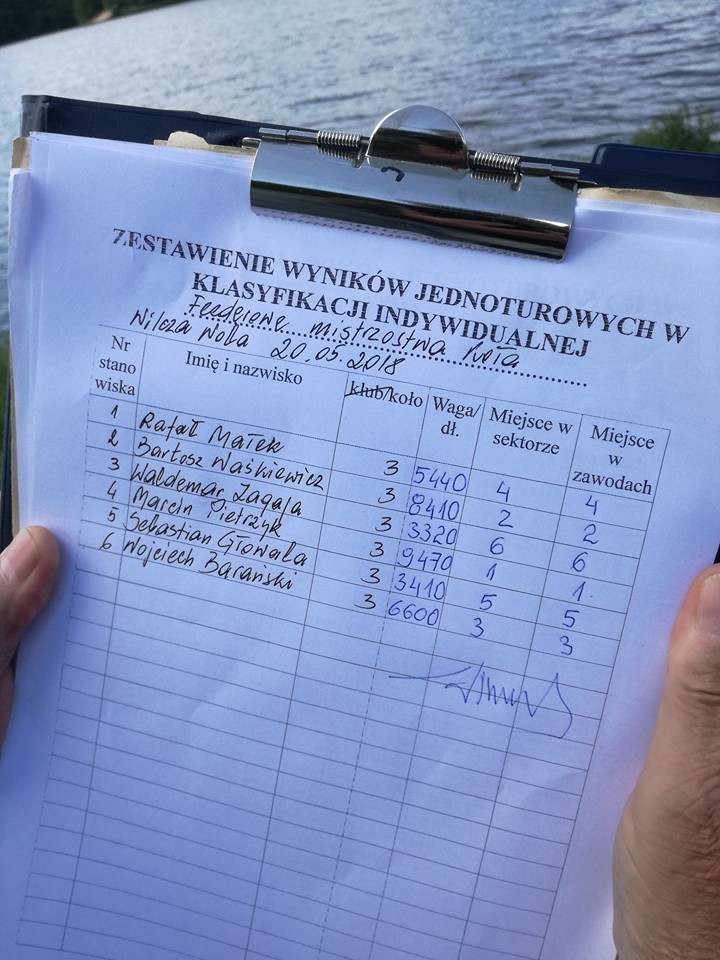 ZESTAWIENIE WYNIKÓW JEDNOTUROWYCH W
KLASYFIKACJI INDYWIDUALNEJ
Feederowe mistrzostwa koła
Wilcza Wola 20.05.2018
Nr stano wiska Imię i nazwisko klub/koło Waga/ dł. Miejsce w sektorze Miejsce w zawodach
1 Rafał Małek 3 5440 4 4
2 Bartosz Waśkiewicz 3 8410 2 2
3 Waldemar Zagaja 3 3320 6 6
4 Marcin Pietrzyk 3 9470 1 1.
5 Sebastian Głowala 3 3410 5 5
6 Wojciech Barański 3 6600 3 3